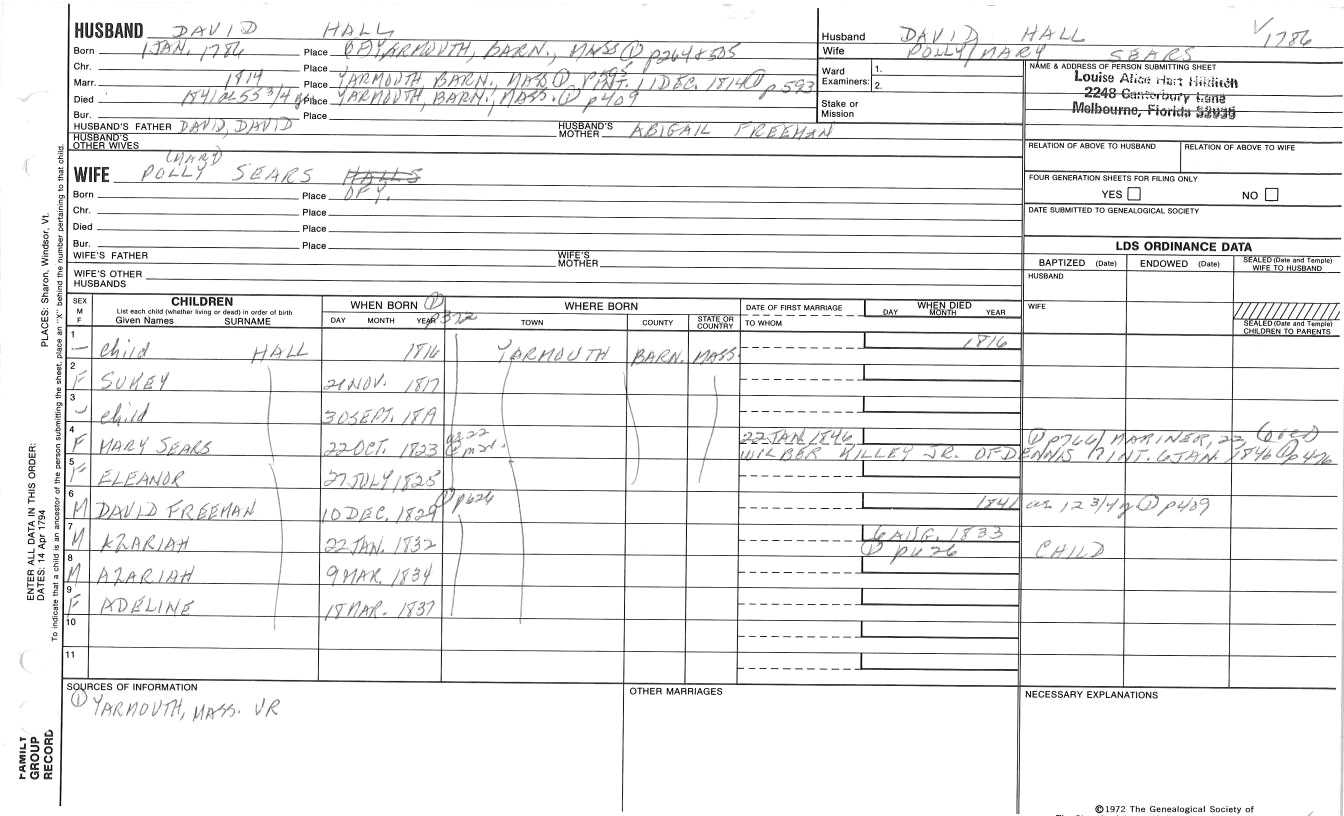 HUSBAND DAVID HALL
Born 1 JAN. 1786 Place OF YARMOUTH, BARN., MASS ① p264 & 505
Chr. Place
Marr. 1814 Place YARMOUTH, BARN., MASS ① INT. 1 DEC. 1814 ① p593
Died 1841 ae 55 3/4 y Place YARMOUTH, BARN., MASS. ① p409
Bur. Place
HUSBAND'S FATHER DAVID, DAVID HUSBAND'S MOTHER ABIGAIL FREEMAN
HUSBAND'S OTHER WIVES
(MARY)
WIFE POLLY SEARS HALLS
Born Place OF Y.
Chr. Place
Died Place
Bur. Place
WIFE'S FATHER WIFE'S MOTHER
WIFE'S OTHER HUSBANDS
Husband DAVID HALL V 1786
Wife POLLY/MARY SEARS
Ward Examiners: 1. 2.
Stake or Mission
NAME & ADDRESS OF PERSON SUBMITTING SHEET
Louise Alice Hart Hilditch
2248 Canterbury Lane
Melbourne, Florida 32935
RELATION OF ABOVE TO HUSBAND RELATION OF ABOVE TO WIFE
FOUR GENERATION SHEETS FOR FILING ONLY
YES NO
DATE SUBMITTED TO GENEALOGICAL SOCIETY
LDS ORDINANCE DATA
BAPTIZED (Date) ENDOWED (Date) SEALED (Date and Temple) WIFE TO HUSBAND
HUSBAND
WIFE
SEALED (Date and Temple) CHILDREN TO PARENTS
SEX M F
CHILDREN
List each child (whether living or dead) in order of birth
Given Names SURNAME
WHEN BORN ① p372
DAY MONTH YEAR
WHERE BORN
TOWN COUNTY STATE OR COUNTRY
DATE OF FIRST MARRIAGE
TO WHOM
WHEN DIED
DAY MONTH YEAR
1 – child HALL 1816 YARMOUTH BARN. MASS. 1816
2 F SUKEY 21 NOV. 1817
3 child 30 SEPT. 1819
4 F MARY SEARS 22 OCT. 1823 ae 22 @ m 22 JAN 1846 ① p766/ MARINER, 22
WILBER KILLEY JR. OF DENNIS INT. 6 JAN. 1846 ① p476
5 F ELEANOR 27 JULY 1825
6 M DAVID FREEMAN 10 DEC. 1829 ① p626 1841 ae 12 3/4 y ① p409
7 M AZARIAH 22 JAN. 1832 6 AUG. 1833 ① p626 CHILD
8 M AZARIAH 9 MAR. 1834
9 F ADELINE 18 MAR. 1837
10
11
SOURCES OF INFORMATION
① YARMOUTH, MASS. VR
OTHER MARRIAGES
NECESSARY EXPLANATIONS
©1972 The Genealogical Society of
PLACES: Sharon, Windsor, Vt.
ENTER ALL DATA IN THIS ORDER:
DATES: 14 Apr 1794
To indicate that a child is an ancestor of the person submitting the sheet, place an "X" behind the number pertaining to that child.
FAMILY GROUP RECORD